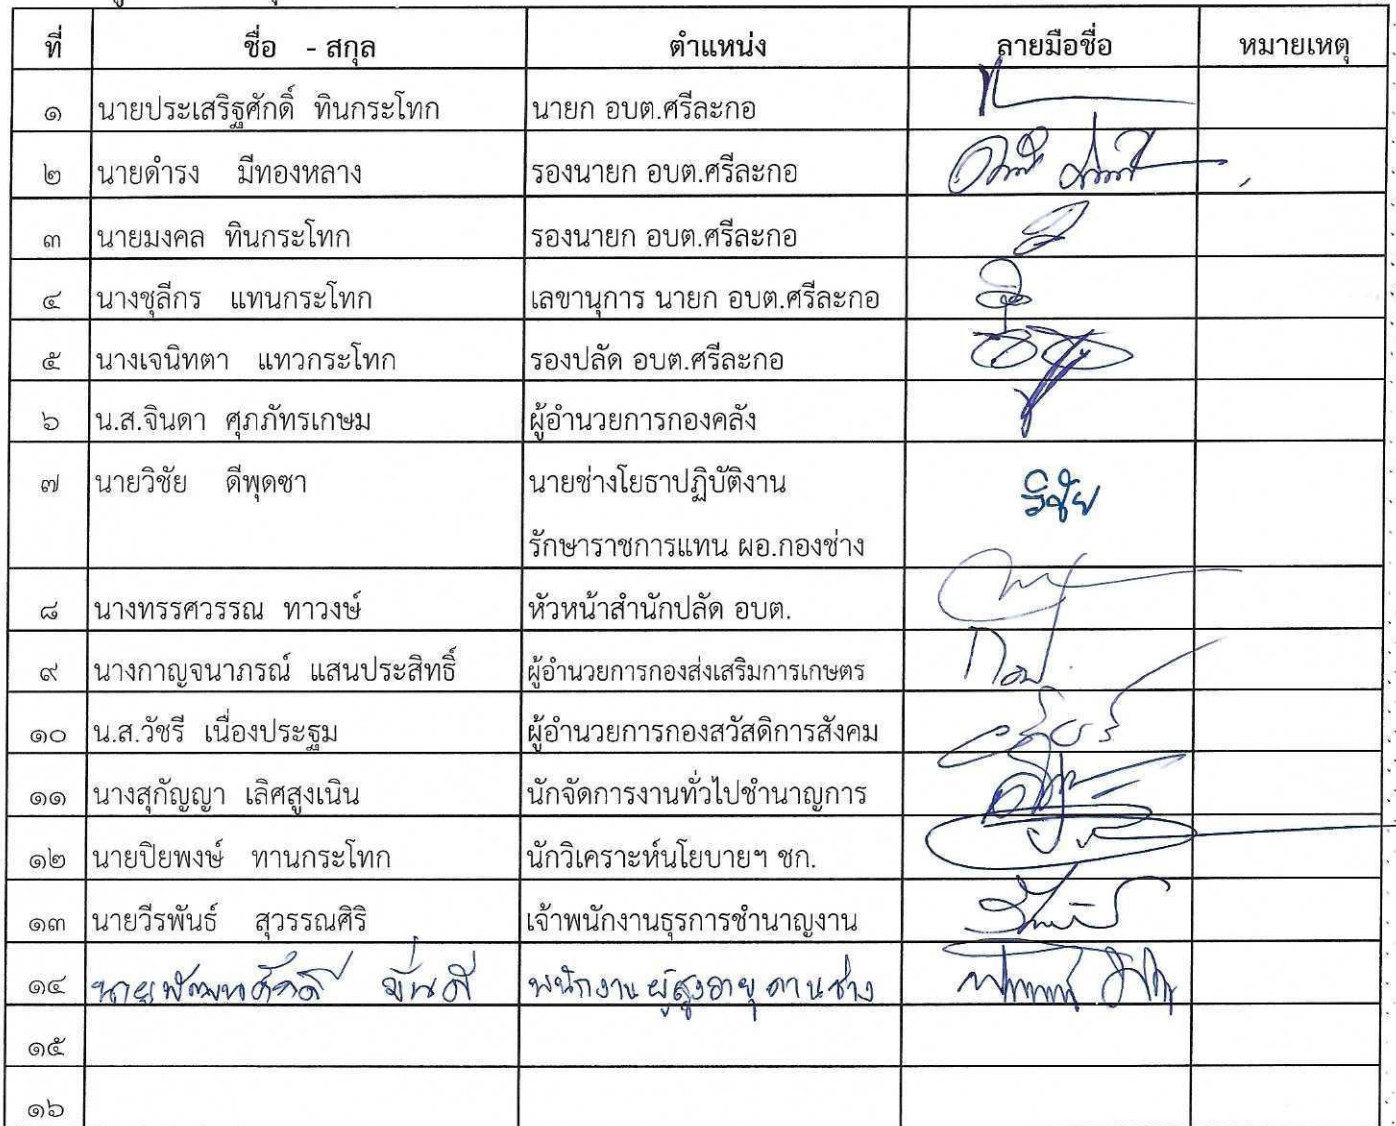 ที่ ชื่อ - สกุล ตำแหน่ง ลายมือชื่อ หมายเหตุ
๑ นายประเสริฐศักดิ์ ทินกระโทก นายก อบต.ศรีละกอ
๒ นายดำรง มีทองหลาง รองนายก อบต.ศรีละกอ
๓ นายมงคล ทินกระโทก รองนายก อบต.ศรีละกอ
๔ นางชุลีกร แทนกระโทก เลขานุการ นายก อบต.ศรีละกอ
๕ นางเจนิทตา แทวกระโทก รองปลัด อบต.ศรีละกอ
๖ น.ส.จินดา ศุภภัทรเกษม ผู้อำนวยการกองคลัง
๗ นายวิชัย ดีพุดซา นายช่างโยธาปฏิบัติงาน วิชัย
รักษาราชการแทน ผอ.กองช่าง
๘ นางทรรศวรรณ ทาวงษ์ หัวหน้าสำนักปลัด อบต.
๙ นางกาญจนาภรณ์ แสนประสิทธิ์ ผู้อำนวยการกองส่งเสริมการเกษตร
๑๐ น.ส.วัชรี เนื่องประฐม ผู้อำนวยการกองสวัสดิการสังคม
๑๑ นางสุกัญญา เลิศสูงเนิน นักจัดการงานทั่วไปชำนาญการ
๑๒ นายปิยพงษ์ ทานกระโทก นักวิเคราะห์นโยบายฯ ชก.
๑๓ นายวีรพันธ์ สุวรรณศิริ เจ้าพนักงานธุรการชำนาญงาน
๑๔ นายพัฒนศักดิ์ พนักงานผู้สูงอายุ ช่าง
๑๕
๑๖